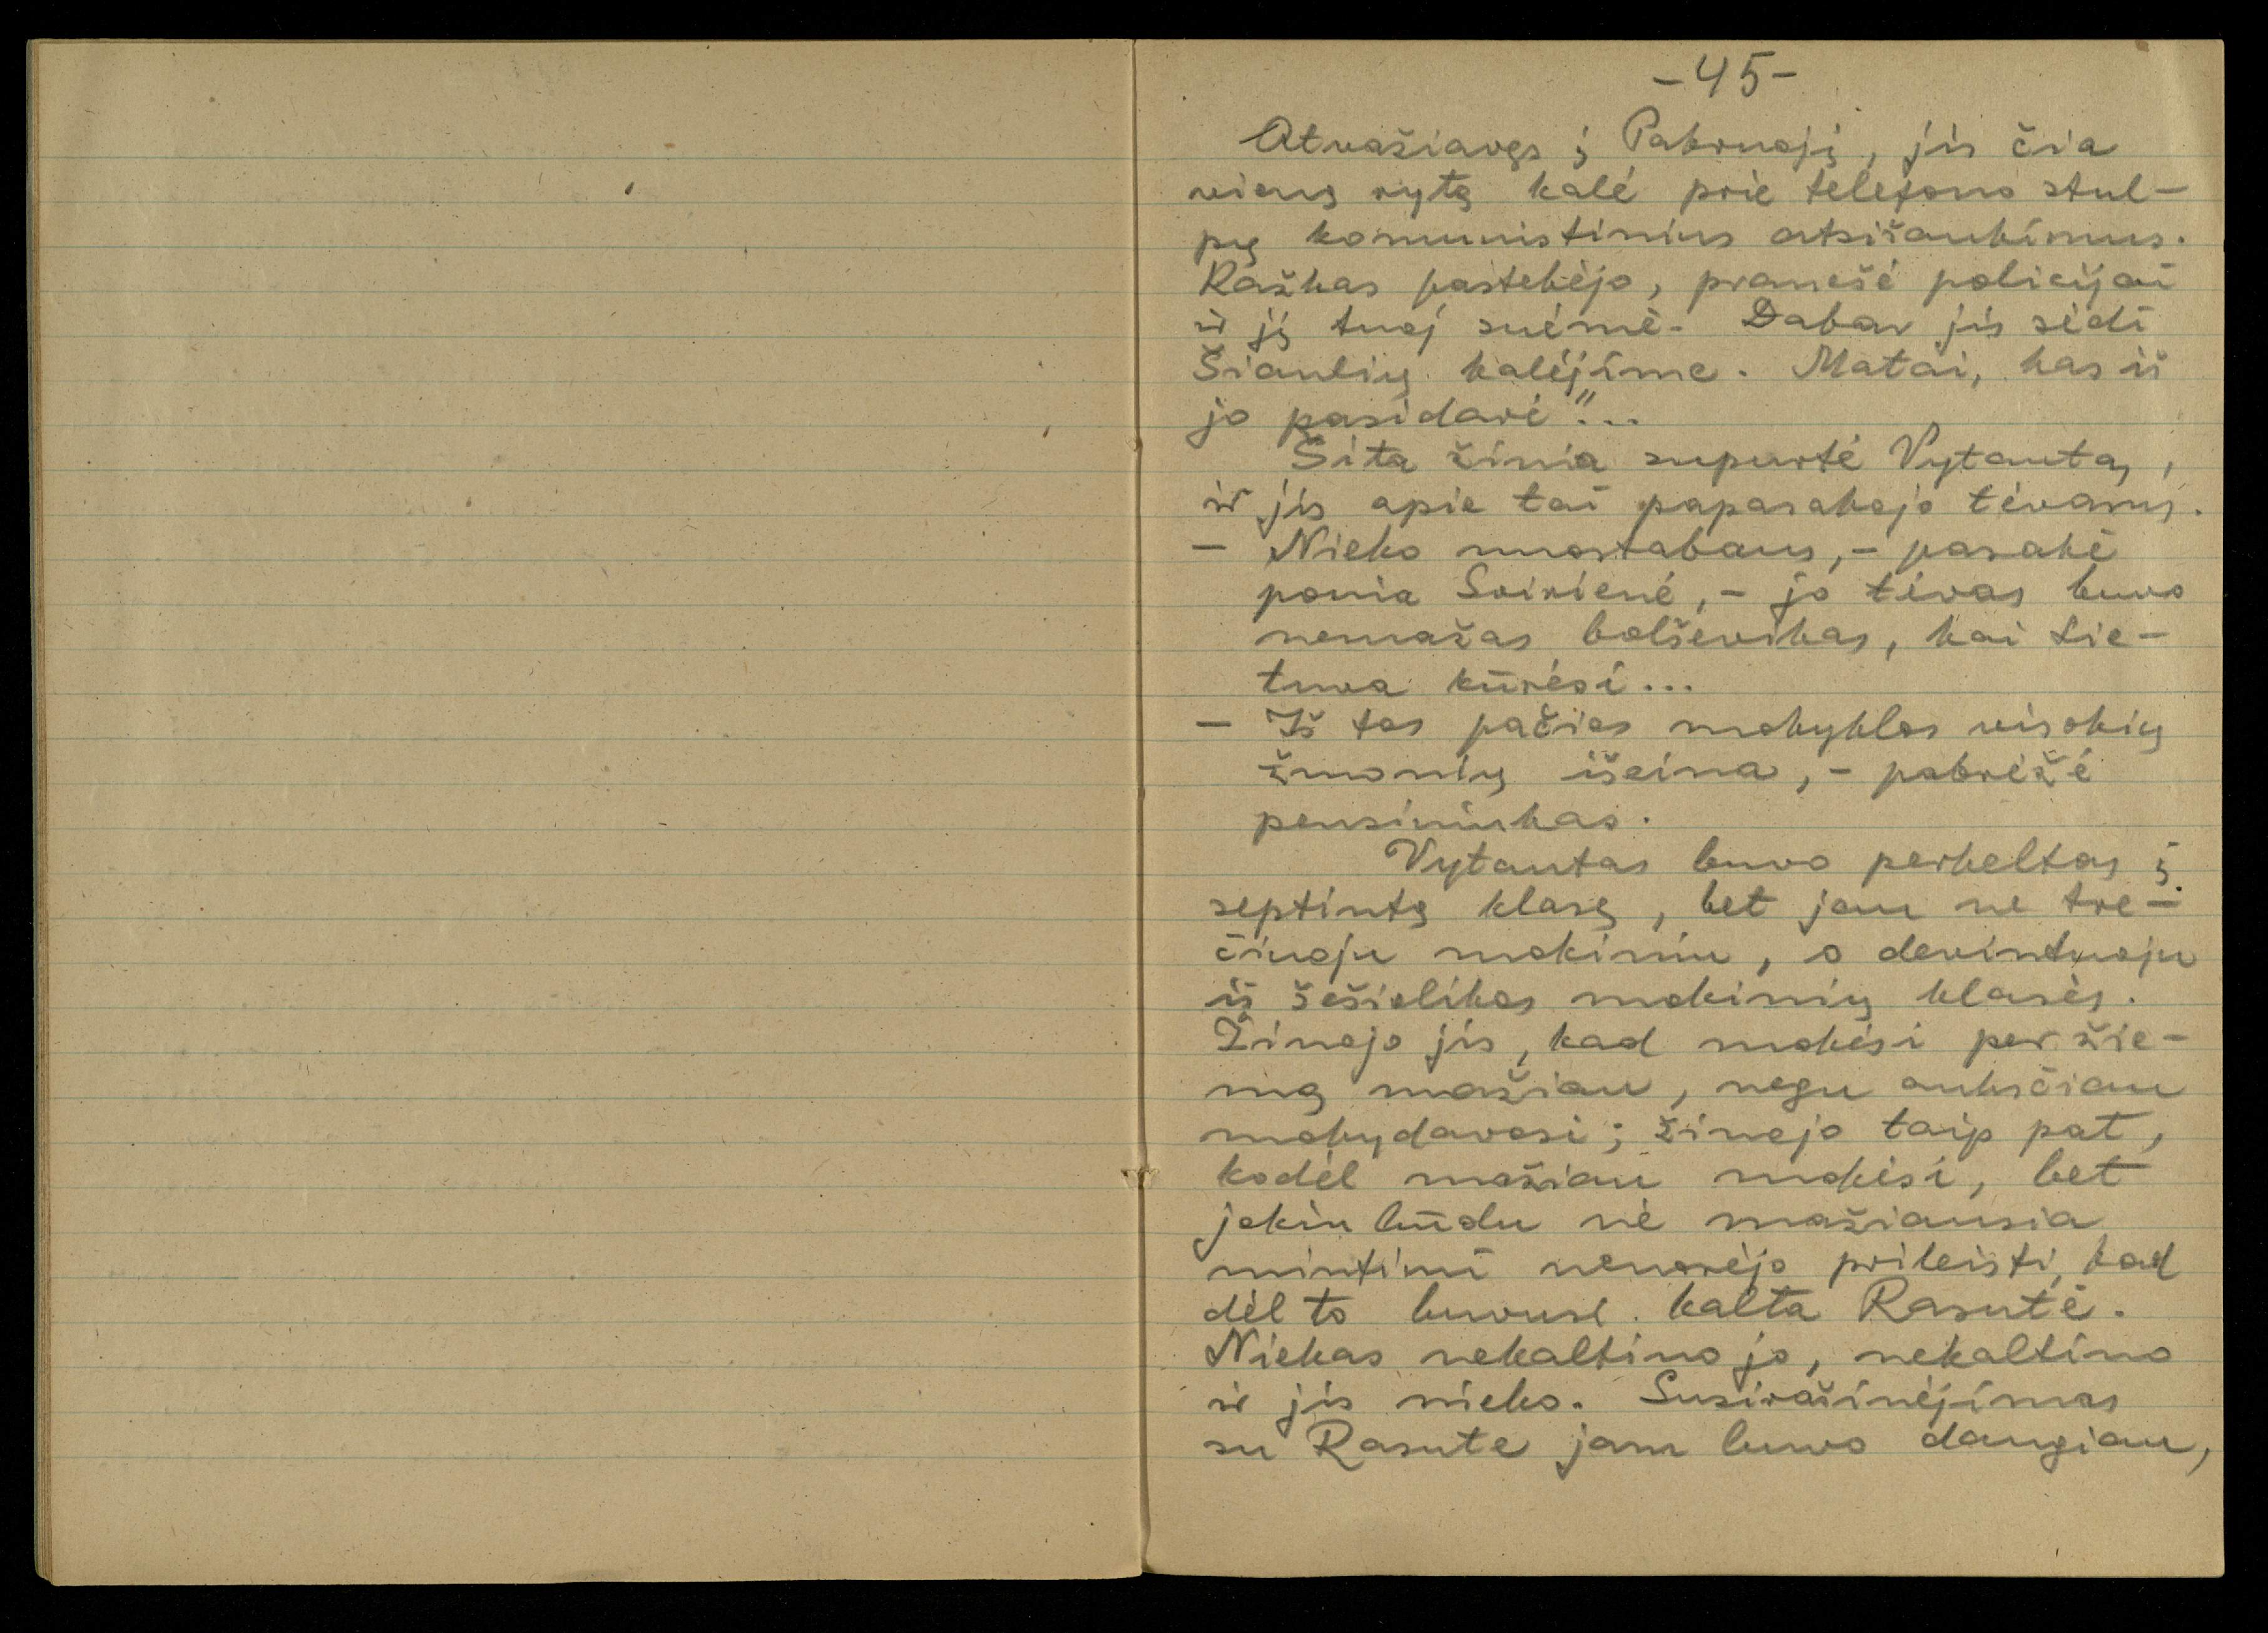 -45-
Atvažiavęs į Pakruojį, jis čia
vieną rytą kalė prie telefono stul-
pų komunistinius atsišaukimus.
Kažkas pastebėjo, pranešė policijai
ir jį tuoj suėmė. Dabar jis sėdi
Šiaulių kalėjime. Matai, kas iš
jo pasidarė"...
Šita žinia supurtė Vytautą,
ir jis apie tai papasakojo tėvams.
- Nieko nuostabaus, - pasakė
ponia Svirienė, - jo tėvas buvo
nemažas bolševikas, kai Lie-
tuva kūrėsi...
- Iš tos pačios mokyklos visokių
žmonių išeina, - pabrėžė
pensininkas.
Vytautas buvo perkeltas į
septintą klasę, bet jau ne tre-
čiuoju mokiniu, o devintuoju
iš šešiolikos mokinių klasės.
Žinojo jis, kad mokėsi per žie-
mą mažiau, negu anksčiau
mokydavosi; žinojo taip pat,
kodėl mažiau mokėsi, bet
jokiu būdu nė mažiausia
mintimi nenorėjo prileisti, kad
dėl to buvusi kalta Rasutė.
Niekas nekaltino jo, nekaltino
ir jis nieko. Susirašinėjimas
su Rasute jam buvo daugiau,